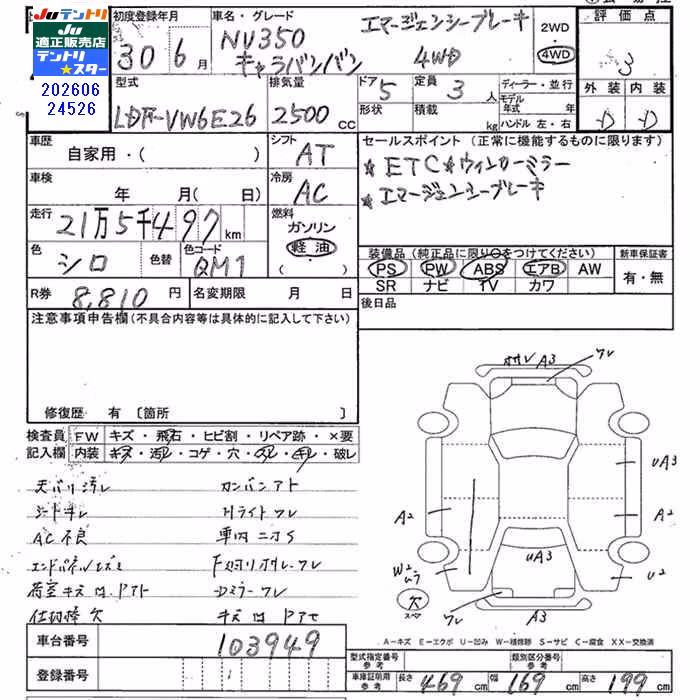 JUテントリ
JU
適正販売店
テントリ
★スター
202606
24526
初度登録年月
30 6月
車名・グレード
NV350
キャラバンバン
エマージェンシーブレーキ
4WD
2WD
4WD
評価点
3
型式
LDF-VW6E26
排気量
2500 CC
ドア 5
形状
定員 3人
積載 kg
ディーラー・並行
モデル年式 年
ハンドル 左・右
外装 内装
D D
車歴
自家用・( )
シフト AT
車検
年 月(日)
冷房 AC
走行
21万5千497km
燃料
ガソリン
軽油
( )
色 シロ
色替
色コード QM1
R券 8,810円
名変期限 月 日
セールスポイント (正常に機能するものに限ります)
★ETC★ウィンカーミラー
★エマージェンシーブレーキ
装備品(純正品に限り○をつけてください)
PS PW ABS エアB AW
SR ナビ TV カワ
新車保証書
有・無
後日品
注意事項申告欄(不具合内容等は具体的に記入して下さい)
修復歴 有 〔箇所 〕
検査員記入欄
FW キズ・飛石・ヒビ割・リペア跡・×要
内装 キズ・汚レ・コゲ・穴・スレ・キレ・破レ
天バリ汚レ カンバンアト
シートキレ Hライトワレ
AC不良 車内ニオイ
ワレ
Dミラーワレ
荷室キズ
欠 キズ
A3 ワレ
UA3
A2 A2
W2 UA3 U2
欠
ワレ A3
A-キズ E-エクボ U-凹み W-補修跡 S-サビ C-腐食 XX-交換済
車台番号 103949
登録番号
型式指定番号 参考
類別区分番号 参考
車庫証明用 参考
長さ 469cm 幅 169cm 高さ 199cm